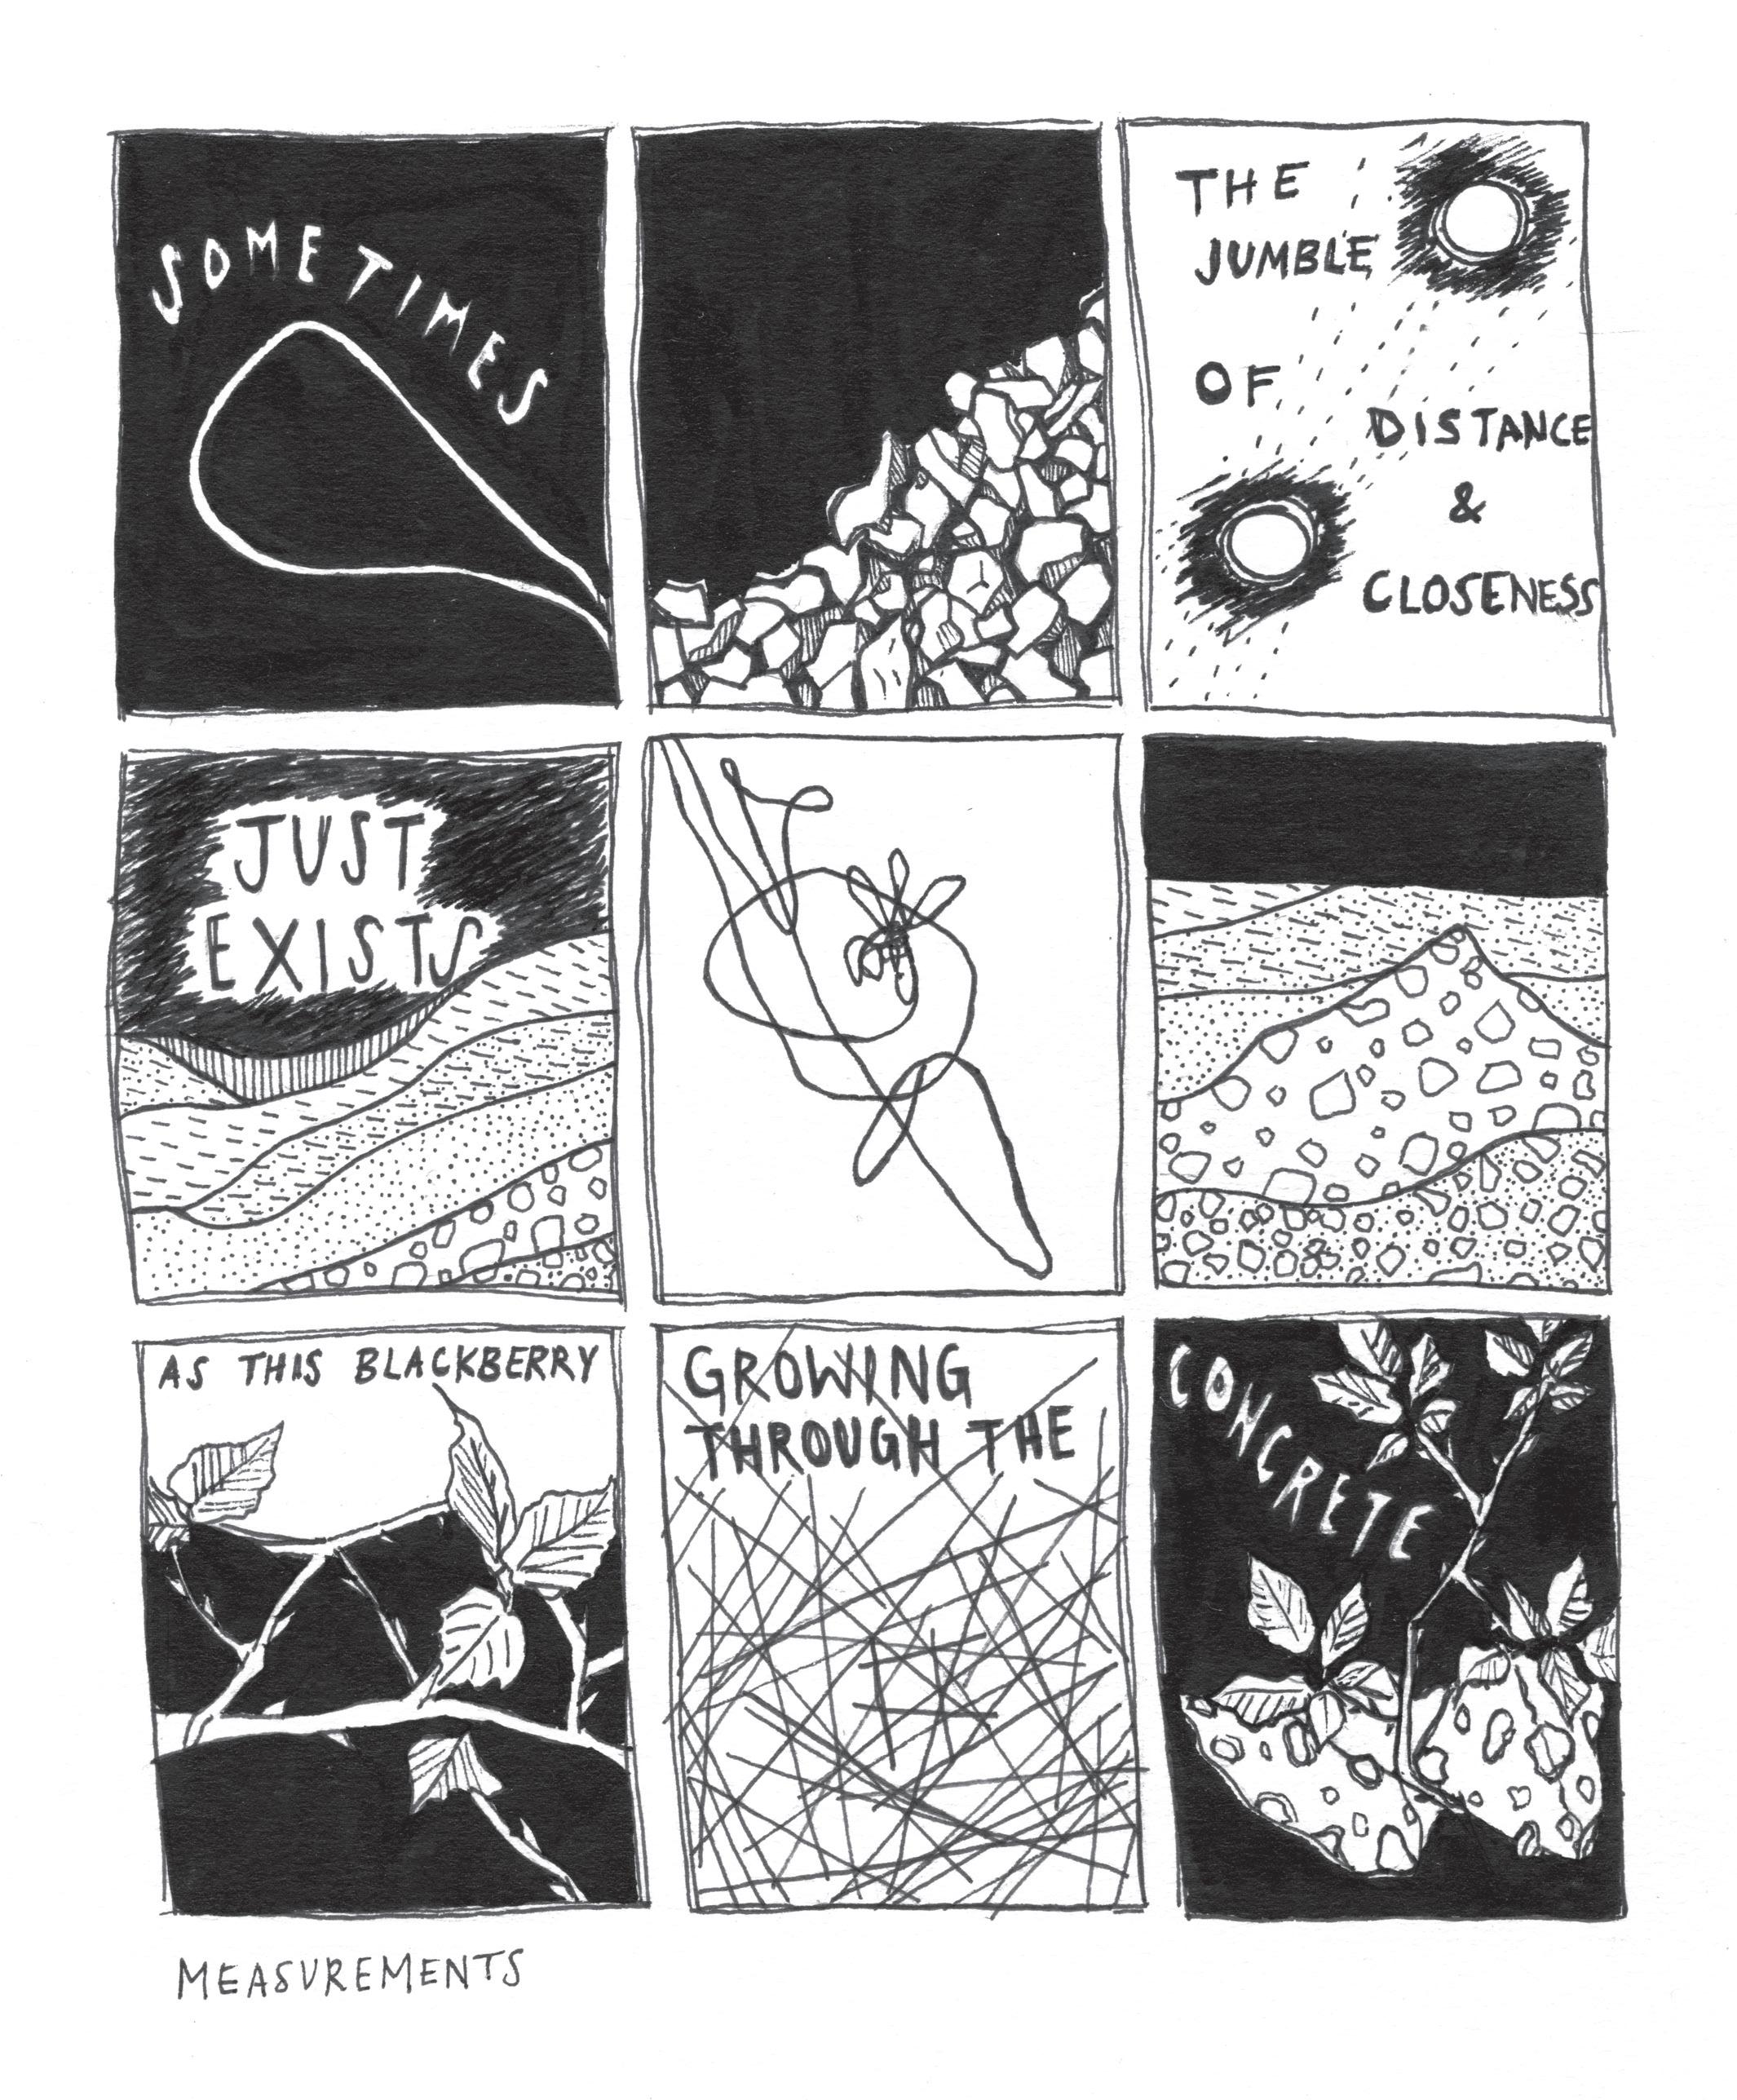 SOMETIMES
THE
JUMBLE
OF
DISTANCE
&
CLOSENESS
JUST
EXISTS
AS THIS BLACKBERRY
GROWING
THROUGH THE
CONCRETE
MEASUREMENTS